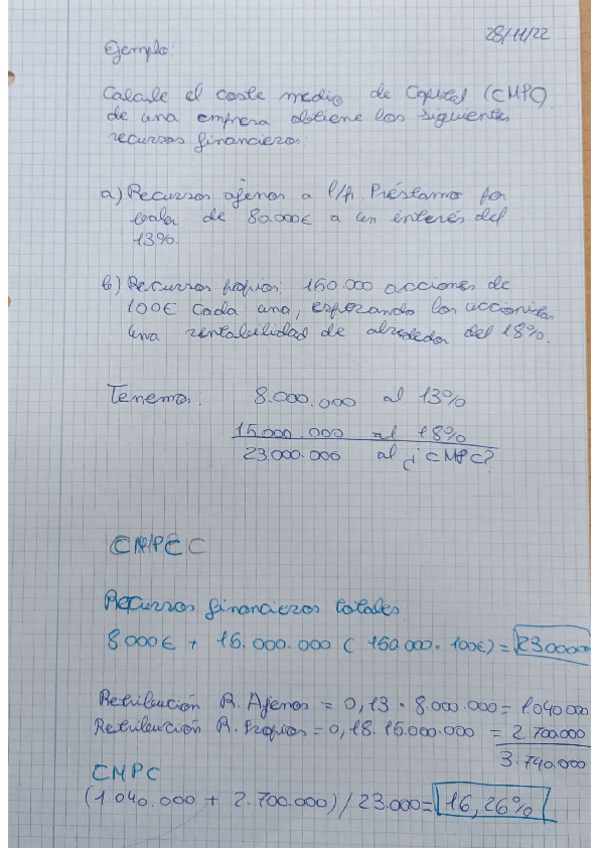 28/11/22
Ejemplo:
Calcule el coste medio de Capital (CMPC)
de una empresa obtiene los siguientes
recursos financieros:
a) Recursos ajenos a l/p. Préstamo por
valor de 80.000€ a un interés del
13%.
b) Recursos propios: 150.000 acciones de
100€ cada una, esperando los accionistas
una rentabilidad de alrededor del 18%.
Tenemos: 8.000.000 al 13%
15.000.000 al 18%
23.000.000 al ¿CMPC?
CMPEC
Recursos financieros totales
8.000€ + 15.000.000 (150.000 · 100€) = 230000
Retribución R. Ajenos = 0,13 · 8.000.000 = 1.040.000
Retribución R. Propios = 0,18. 15.000.000 = 2.700.000
3.740.000
CMPC
(1.040.000 + 2.700.000) / 23.000 = 16,26%